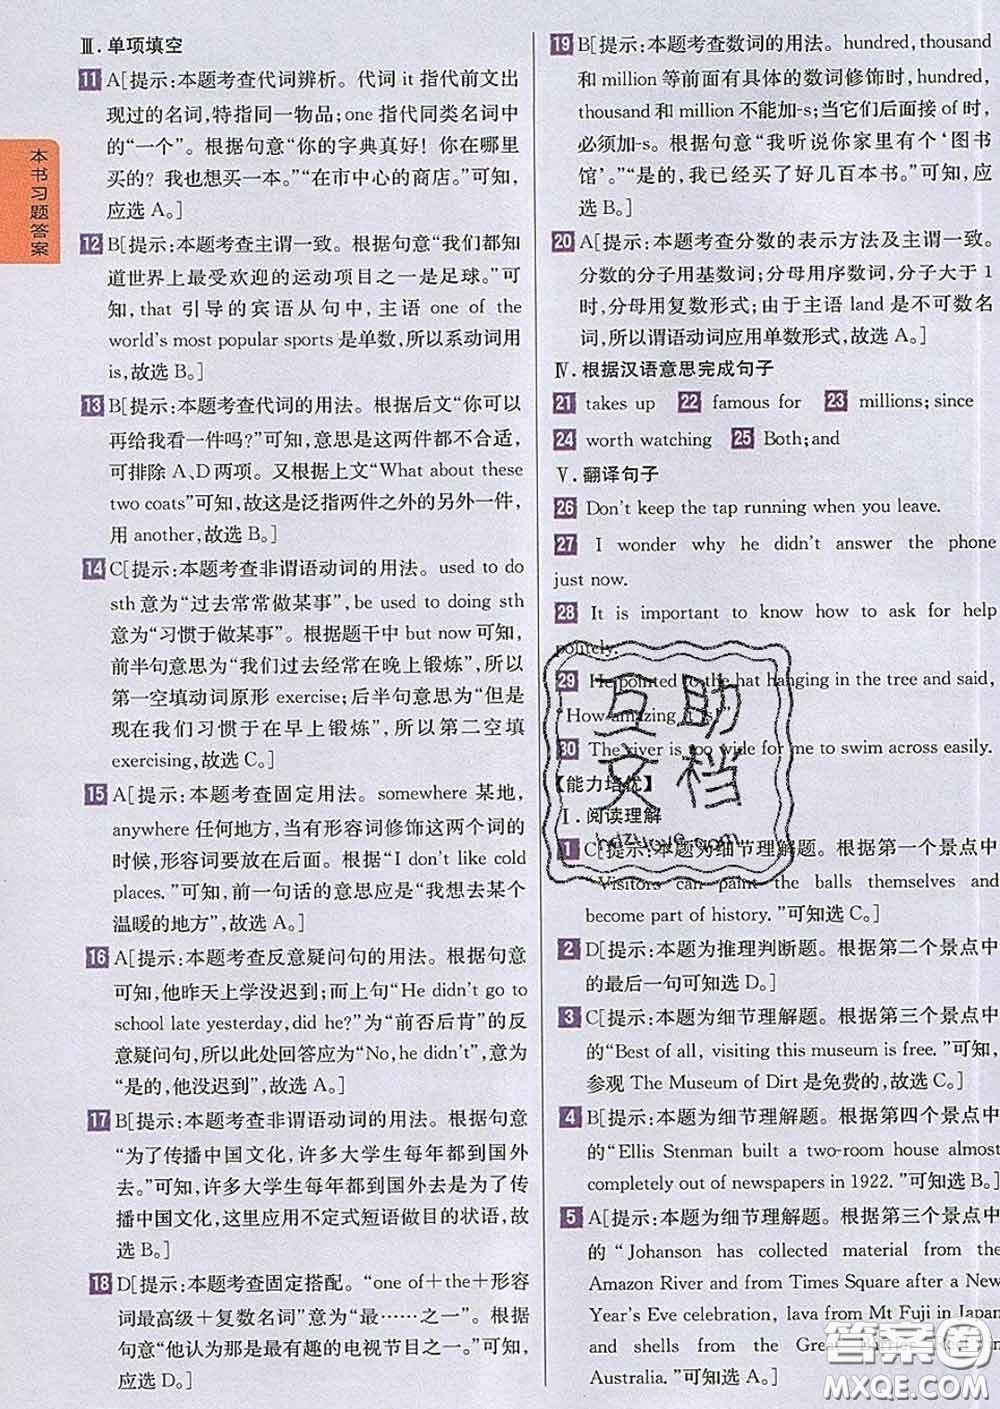 本书习题答案
Ⅲ.单项填空
11 A[提示:本题考查代词辨析。代词 it 指代前文出
现过的名词,特指同一物品;one 指代同类名词中
的“一个”。根据句意“你的字典真好！你在哪里
买的？我也想买一本。”“在市中心的商店。”可知,
应选 A。]
12 B[提示:本题考查主谓一致。根据句意“我们都知
道世界上最受欢迎的运动项目之一是足球。”可
知,that 引导的宾语从句中,主语 one of the
world's most popular sports 是单数,所以系动词用
is,故选 B。]
13 B[提示:本题考查代词的用法。根据后文“你可以
再给我看一件吗?”可知,意思是这两件都不合适,
可排除 A、D 两项。又根据上文“What about these
two coats”可知,故这是泛指两件之外的另外一件,
用 another,故选 B。]
14 C[提示:本题考查非谓语动词的用法。used to do
sth 意为“过去常常做某事”,be used to doing sth
意为“习惯于做某事”。根据题干中 but now 可知,
前半句意思为“我们过去经常在晚上锻炼”,所以
第一空填动词原形 exercise;后半句意思为“但是
现在我们习惯于在早上锻炼”,所以第二空填
exercising,故选 C。]
15 A[提示:本题考查固定用法。somewhere 某地,
anywhere 任何地方,当有形容词修饰这两个词的
时候,形容词要放在后面。根据“I don't like cold
places.”可知,前一句话的意思应是“我想去某个
温暖的地方”,故选 A。]
16 A[提示:本题考查反意疑问句的用法。根据句意
可知,他昨天上学没迟到;而上句“He didn't go to
school late yesterday,did he?”为“前否后肯”的反
意疑问句,所以此处回答应为“No,he didn't”,意为
“是的,他没迟到”,故选 A。]
17 B[提示:本题考查非谓语动词的用法。根据句意
“为了传播中国文化,许多大学生每年都到国外
去。”可知,许多大学生每年都到国外去是为了传
播中国文化,这里应用不定式短语做目的状语,故
选 B。]
18 D[提示:本题考查固定搭配。“one of+the+形容
词最高级+复数名词”意为“最……之一”。根据
句意“他认为那是最有趣的电视节目之一。”可知,
应选 D。]
19 B[提示:本题考查数词的用法。hundred,thousand
和 million 等前面有具体的数词修饰时,hundred,
thousand 和 million 不能加-s;当它们后面接 of 时,
必须加-s。根据句意“我听说你家里有个‘图书
馆’。”“是的,我已经买了好几百本书。”可知,应
选 B。]
20 A[提示:本题考查分数的表示方法及主谓一致。
分数的分子用基数词;分母用序数词,分子大于 1
时,分母用复数形式;由于主语 land 是不可数名
词,所以谓语动词应用单数形式,故选 A。]
Ⅳ.根据汉语意思完成句子
21 takes up 22 famous for 23 millions; since
24 worth watching 25 Both; and
Ⅴ.翻译句子
26 Don't keep the tap running when you leave.
27 I wonder why he didn't answer the phone
just now.
28 It is important to know how to ask for help
politely.
29 He pointed to the hat hanging in the tree and said,
“How amazing it is!”
30 The river is too wide for me to swim across easily.
【能力培优】
Ⅰ.阅读理解
1 C[提示:本题为细节理解题。根据第一个景点中
“Visitors can paint the balls themselves and
become part of history.”可知选 C。]
2 D[提示:本题为推理判断题。根据第二个景点中
的最后一句可知选 D。]
3 C[提示:本题为细节理解题。根据第三个景点中
的“Best of all, visiting this museum is free.”可知,
参观 The Museum of Dirt 是免费的,故选 C。]
4 B[提示:本题为细节理解题。根据第四个景点中
的“Ellis Stenman built a two-room house almost
completely out of newspapers in 1922.”可知选 B。]
5 A[提示:本题为细节理解题。根据第三个景点中
的“Johanson has collected material from the
Amazon River and from Times Square after a New
Year's Eve celebration, lava from Mt Fuji in Japan
and shells from the Great
Australia.”可知选 A。]
互助
文档
hdzuoye.com
答案圈
MXQE.COM